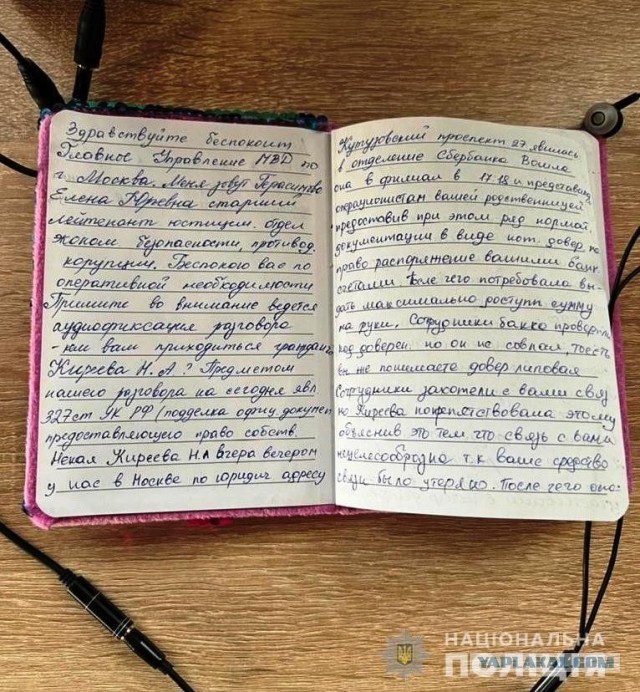 Здравствуйте беспокоит
Главное Управление МВД по
г. Москва. Меня зовут Герасимова
Елена Юрьевна старший
лейтенант юстиции. отдел
эконом безопасности, противод.
корупции. Беспокою вас по
оперативной необходимости
Примите во внимание ведется
аудиофиксация разговора
- кем вам приходиться граждан.
Киреева Н. А? Предметом
нашего разговора на сегодня явл.
327 ст УК РФ (подделка офиц докумен
предоставляющего право собств.
Некая Киреева Н.А вчера вечером
у нас в Москве по юридич адресу
Кутузовский проспект 27. явилась
в отделение Сбербанка Вошла
она в филиал в 17.18 и представилась
операционистам вашей родственницей
предоставив при этом ряд нормат.
документации в виде нот. довер. на
право распоряжение вашими банк.
счетами. После чего потребовала вы-
дать максимально доступн сумму
на руки. Сотрудники банка проверили
код доверен. но он не совпал, то есть
вы же понимаете довер липовая
Сотрудники захотели с вами связ
но Киреева попрепятствовала этому
объяснив это тем, что связь с вами
нецелесообразна т.к ваше средство
связи было утеряно. После чего она:
НАЦІОНАЛЬНА
ПОЛІЦІЯ
YAPLAKAL.COM